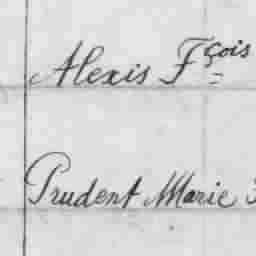 Alexis Fçois
Prudent Marie